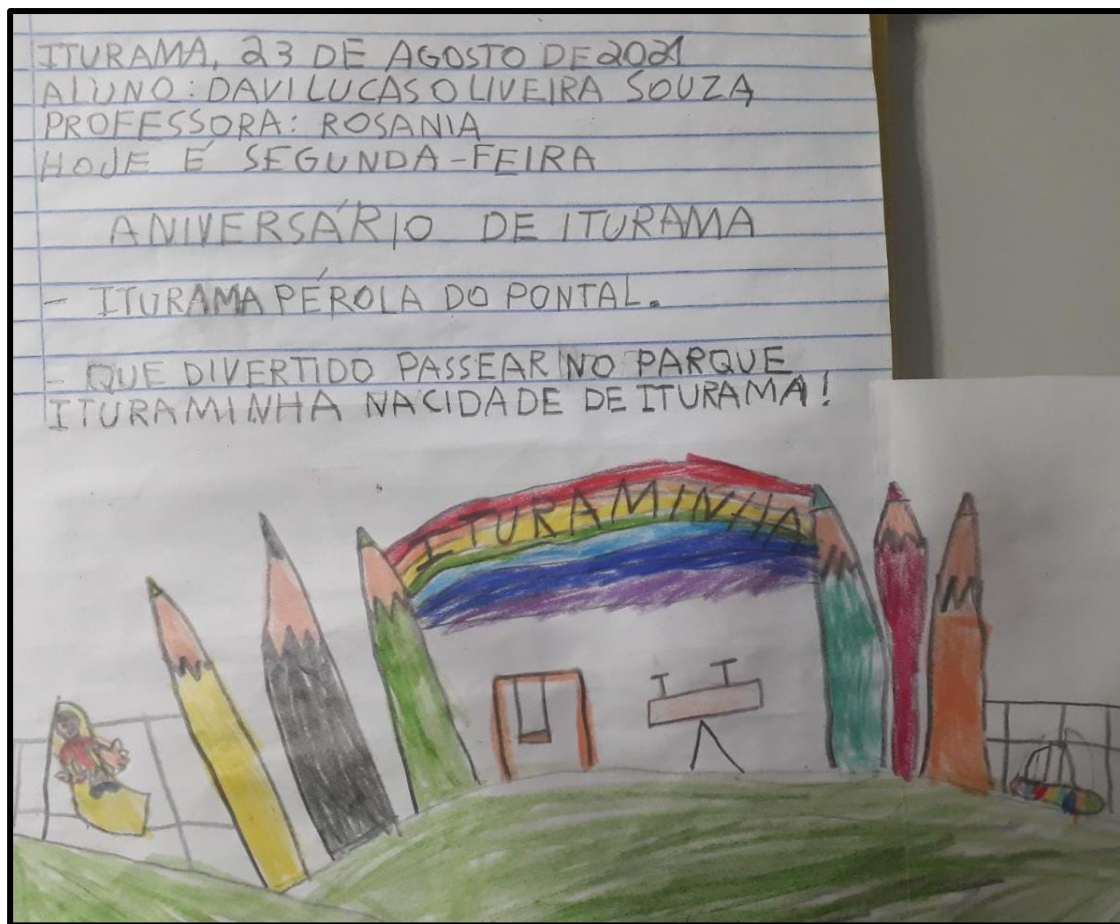 ITURAMA, 23 DE AGOSTO DE 2021
ALUNO: DAVI LUCAS OLIVEIRA SOUZA
PROFESSORA: ROSANIA
HOJE É SEGUNDA-FEIRA
ANIVERSÁRIO DE ITURAMA
- ITURAMA PÉROLA DO PONTAL.
- QUE DIVERTIDO PASSEAR NO PARQUE
ITURAMINHA NA CIDADE DE ITURAMA!
ITURAMINHA